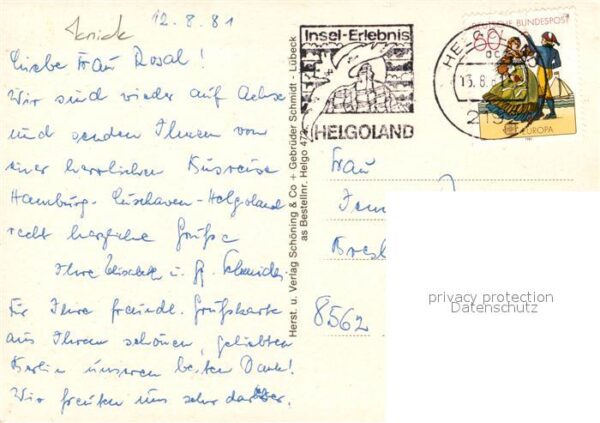 12.8.81
Liebe Frau Rosal!
Wir sind wieder auf Achse
und senden Ihnen von
einer herrlichen Busreise
Hamburg - Cuxhaven - Helgoland
recht herzliche Grüße
Ihre Elisabeth u. Schmider
Für Ihre freundl. Grußkarte
aus Ihrem schönen, geliebten
Berlin unseren besten Dank!
Wir freuten uns sehr darüber.
Herst. u. Verlag Schöning & Co + Gebrüder Schmidt - Lübeck
as Bestellnr. Helgo 47
Insel-Erlebnis
HELGOLAND
HELGOLAND
13.8.
2192
DEUTSCHE BUNDESPOST
60
EUROPA
Frau
8562
privacy protection
Datenschutz